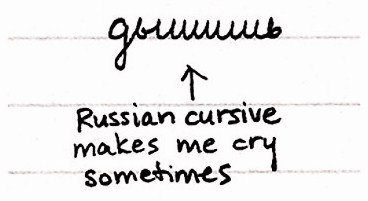 дышишь
↑
Russian cursive
makes me cry
sometimes